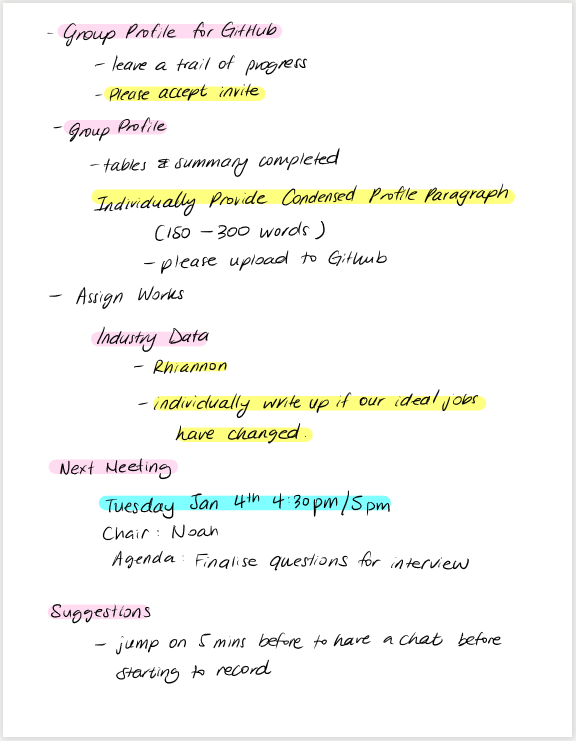 - Group Profile for GitHub
- leave a trail of progress
- Please accept invite
- Group Profile
- tables & summary completed
Individually Provide Condensed Profile Paragraph
(150 - 300 words)
- please upload to Github
- Assign Works
Industry Data
- Rhiannon
- individually write up if our ideal jobs
have changed.
Next Meeting
Tuesday Jan 4th 4:30pm/5pm
Chair: Noah
Agenda: Finalise questions for interview
Suggestions
- jump on 5 mins before to have a chat before
starting to record